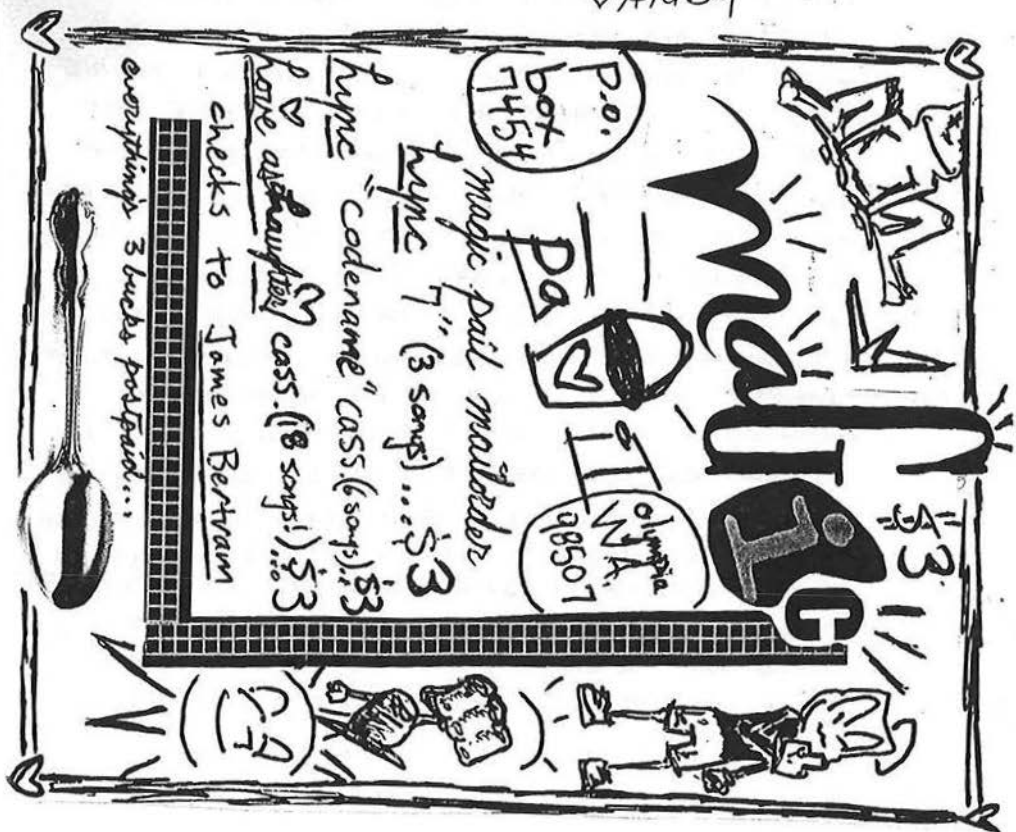 $3
magic
p.o.
box
7454
pail
olympia
WA
98507
magic pail mailorder
Lync 7" (3 songs)...$3
Lync "codename" cass. (6 songs)..$3
Love as Laughter cass. (18 songs!)...$3
checks to James Bertram
everything's 3 bucks postpaid...